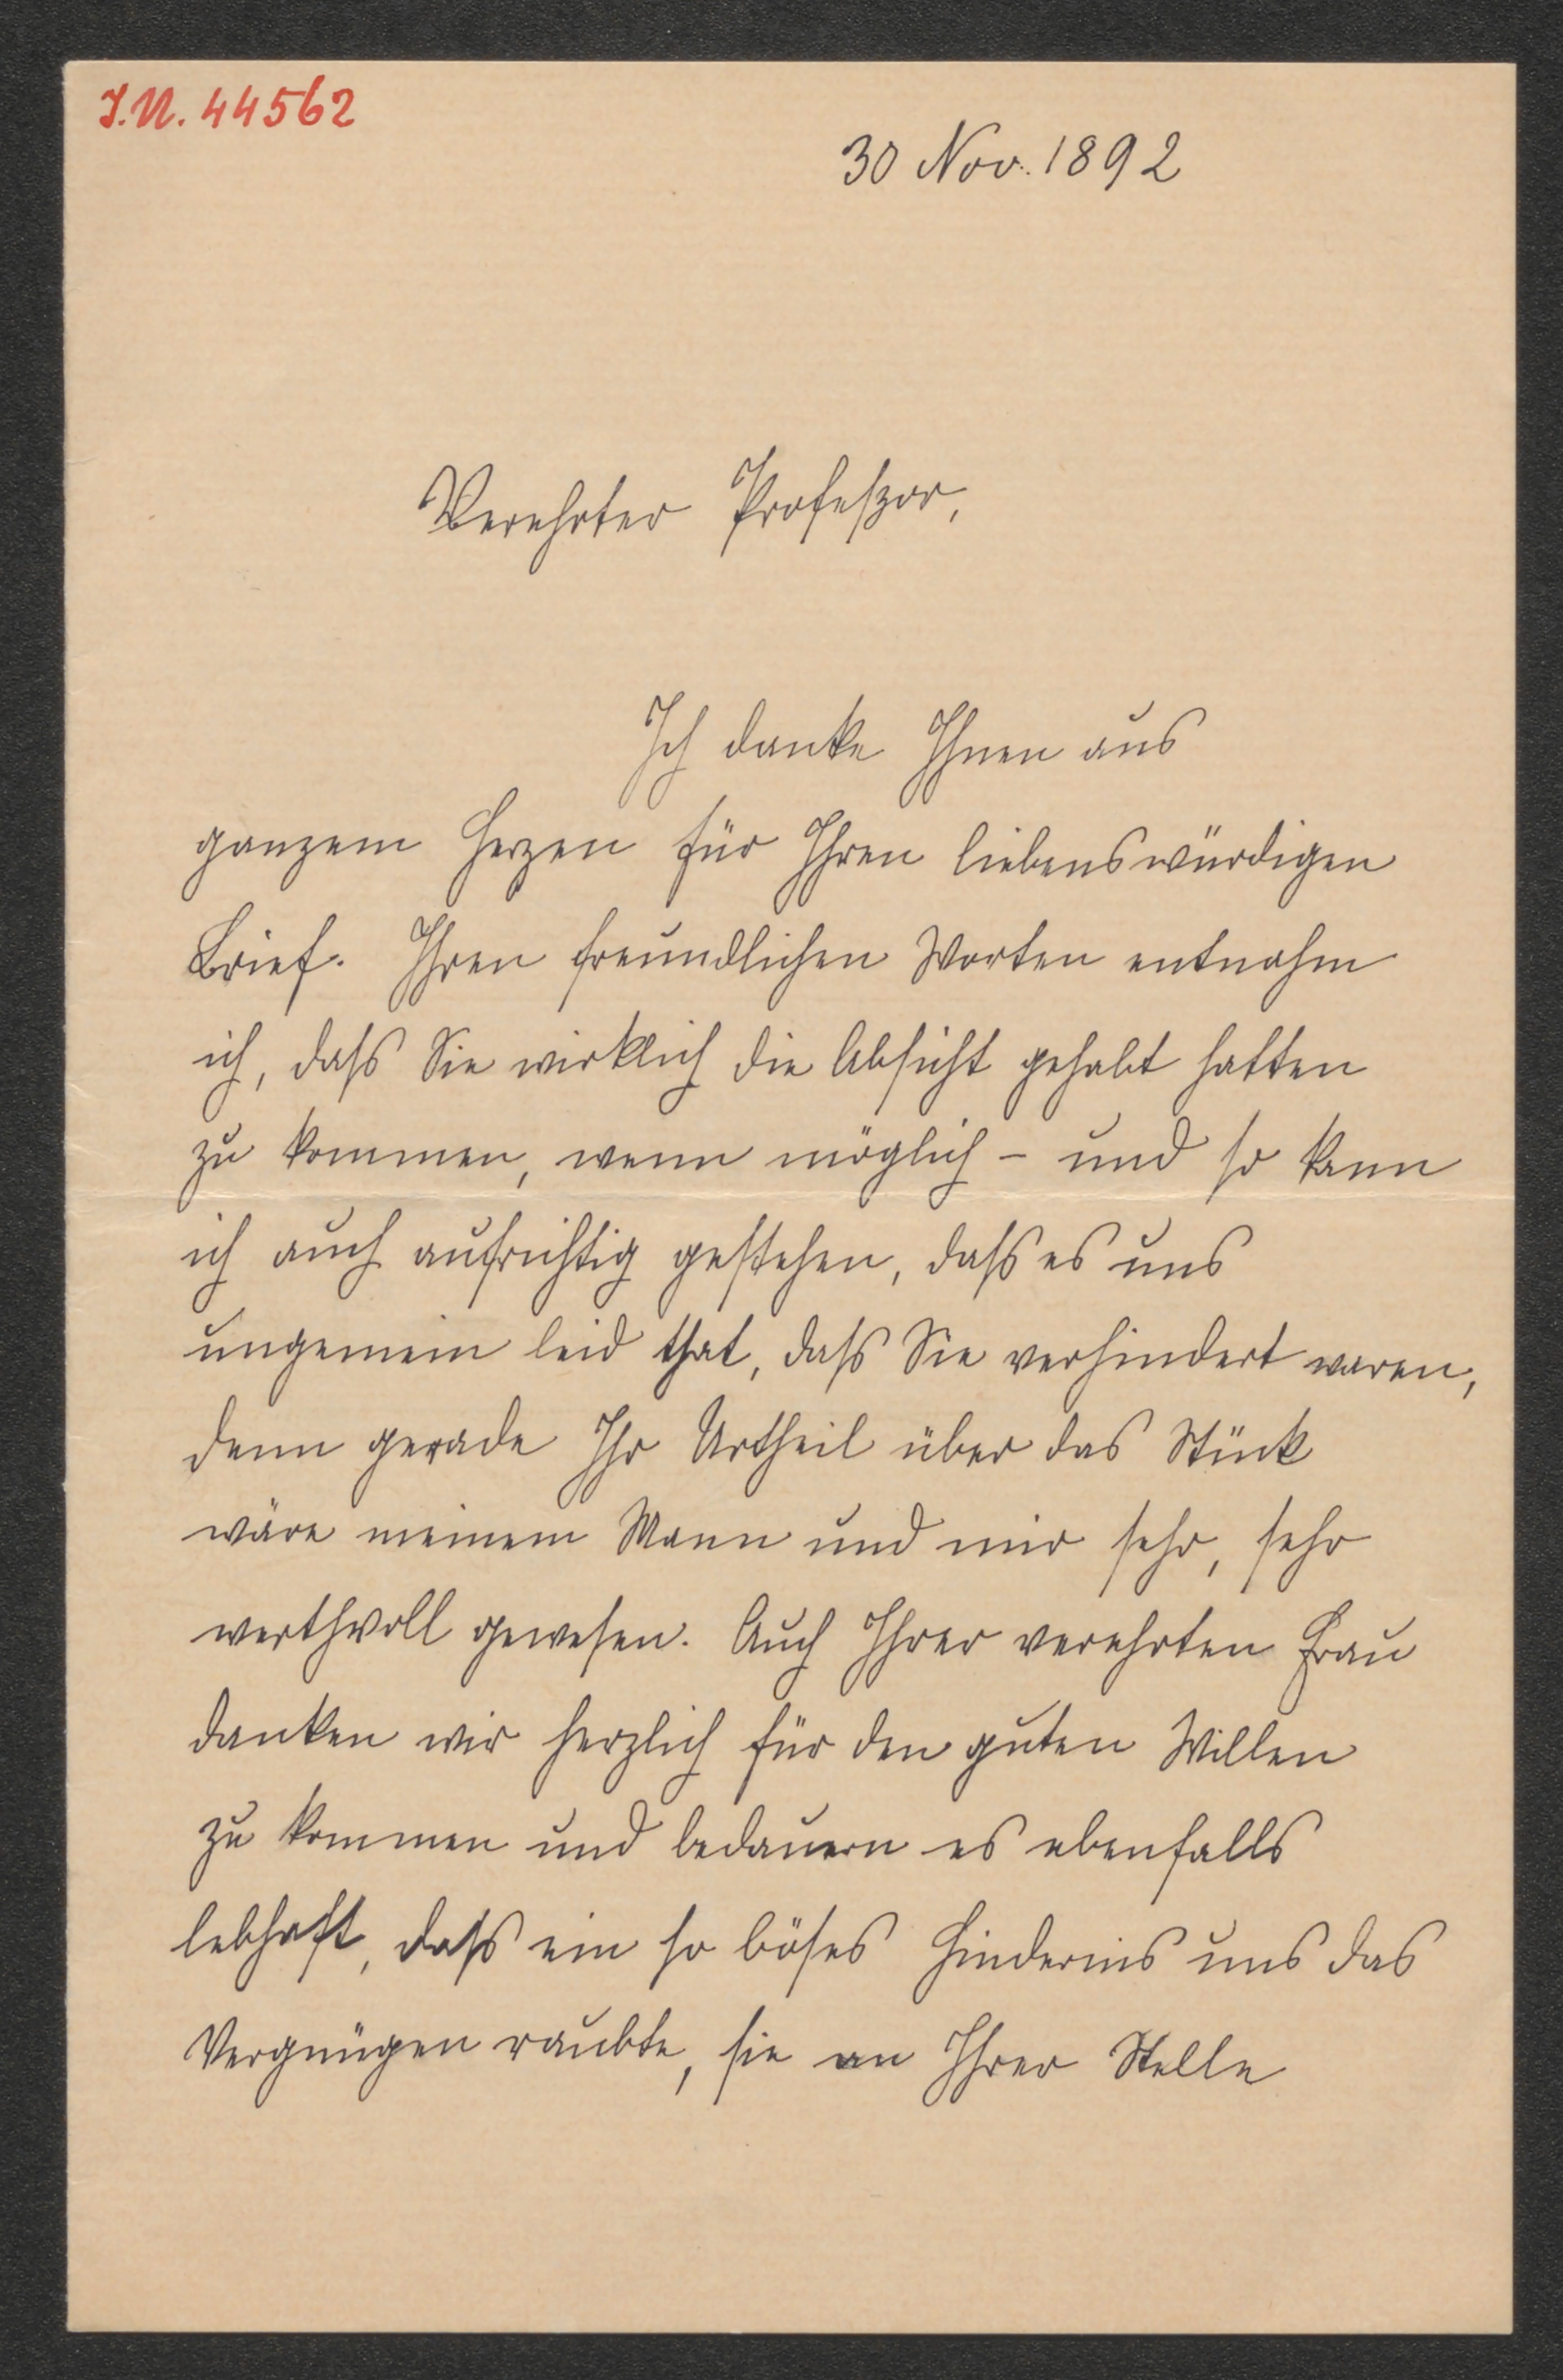 I.N. 44562
30 Nov. 1892
Verehrter Professor,
Ich danke Ihnen aus
ganzem Herzen für Ihren liebenswürdigen
Brief. Ihren freundlichen Worten entnahm
ich, dass Sie wirklich die Absicht gehabt hatten
zu kommen, wenn möglich – und so kann
ich auch aufrichtig gestehen, dass es uns
ungemein leid that, dass Sie verhindert waren,
denn gerade Ihr Urtheil über das Stück
wäre meinem Mann und mir sehr, sehr
werthvoll gewesen. Auch Ihrer verehrten Frau
danken wir herzlich für den guten Willen
zu kommen und bedauern es ebenfalls
lebhaft, dass ein so böses Hindernis uns das
Vergnügen raubte, sie an Ihrer Stelle